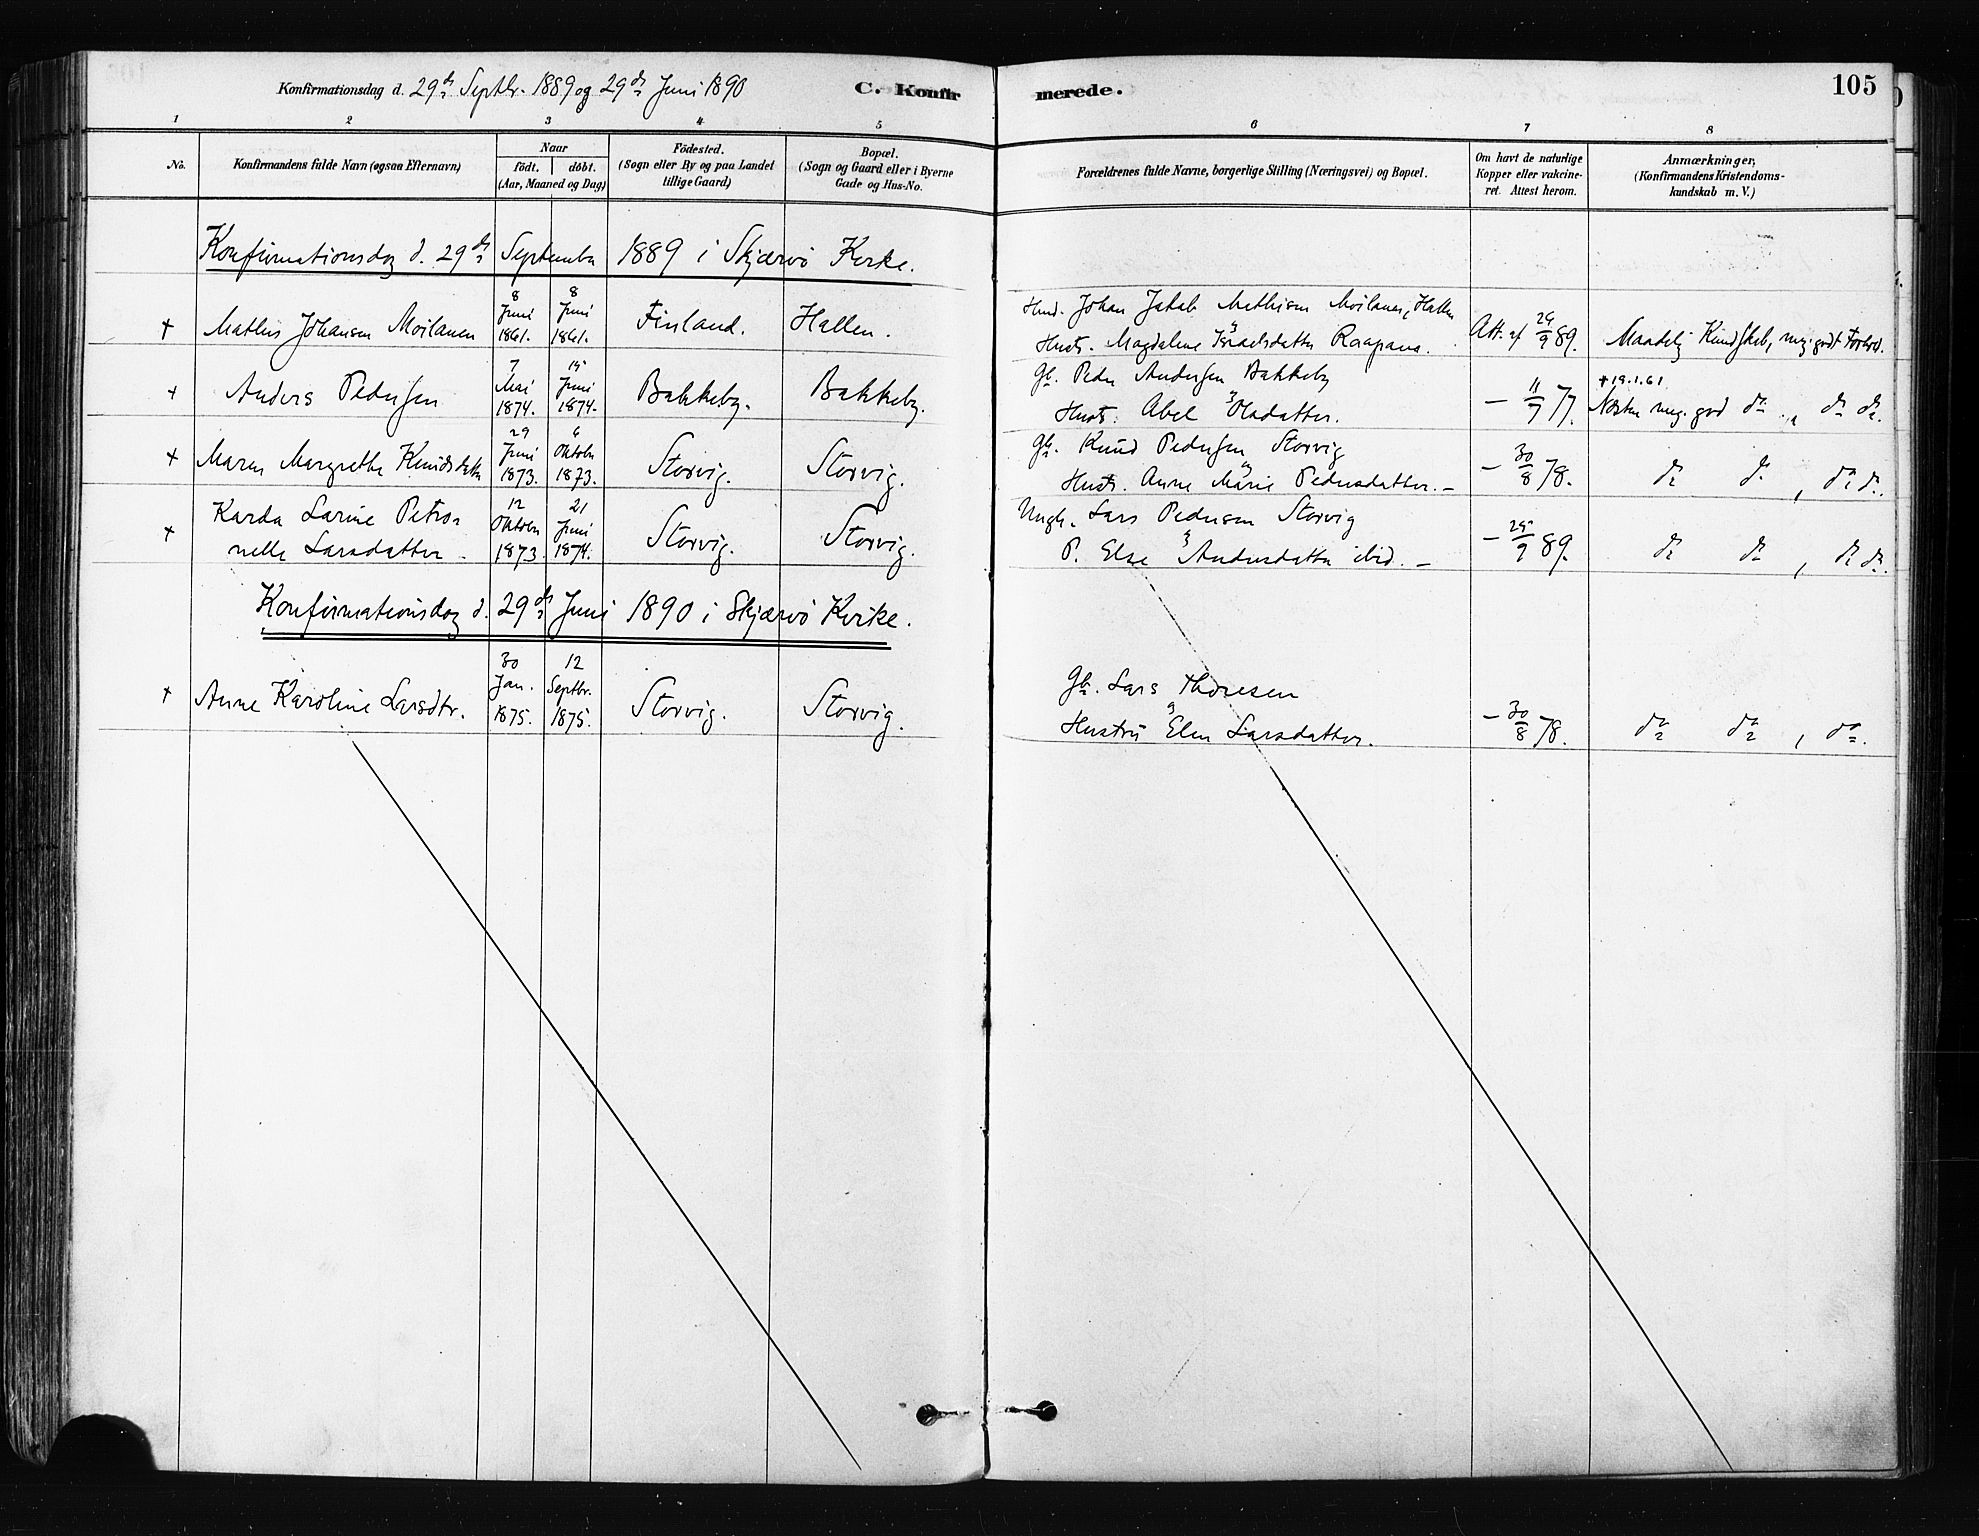 Konfirmationsdag d. 29de Septbr. 1889 og 29de Juni 1890
C. Konfirmerede.
105
1 2 3 4 5 6 7 8
No.
Konfirmandens fulde Navn (ogsaa Efternavn)
Naar
födt. döbt.
(Aar, Maaned og Dag)
Födested.
(Sogn eller By og paa Landet
tillige Gaard)
Bopæl.
(Sogn og Gaard eller i Byerne
Gade og Hus-No.
Forældrenes fulde Navne, borgerlige Stilling (Næringsvei) og Bopæl.
Om havt de naturlige
Kopper eller vakcine-
ret. Attest herom.
Anmærkninger,
(Konfirmandens Kristendoms-
kundskab m. V.)
Konfirmationsdag d. 29de September 1889 i Skjærvö Kirke.
+ Mathis Johansen Moilanen 8 Juni 1861. 8 Juni 1861. Finland. Hallen.
Johan Jakob Mathisen Moilanen, Hallen
Hustr. Magdalene Israelsdatter Raapana.
Att. af 29/9 89. Maadelig Kundskab, meg. godt Forhol.
+ Anders Pedersen 7 Mai 1874. 14 Juni 1874. Bakkeby. Bakkeby.
Gb. Peder Andersen Bakkeby
Hustr. Abel Oladatter.
— 11/9 77. +19.1.61
Næsten meg. god do., do do.
+ Maren Margrethe Knudsdatter 29 Juni 1873. 6 Oktober 1873. Storvig. Storvig.
Gb. Knud Pedersen Storvig
Hustr. Anne Marie Pedersdatter. —
— 30/8 78. do do, do do.
+ Karda Larine Petro-
nelle Larsdatter. 12 Oktober 1873 21 Juni 1874. Storvig. Storvig.
Ungk. Lars Pedersen Storvig
P. Else Andersdatter ibid. —
— 25/9 89. do do, do do.
Konfirmationsdag d. 29de Juni 1890 i Skjærvö Kirke.
+ Anne Karoline Larsdtr. 30 Jan. 1875. 12 Septbr. 1875. Storvig. Storvig.
Gb. Lars Thoresen
Hustru Elen Larsdatter.
— 30/8 78. do do, do.